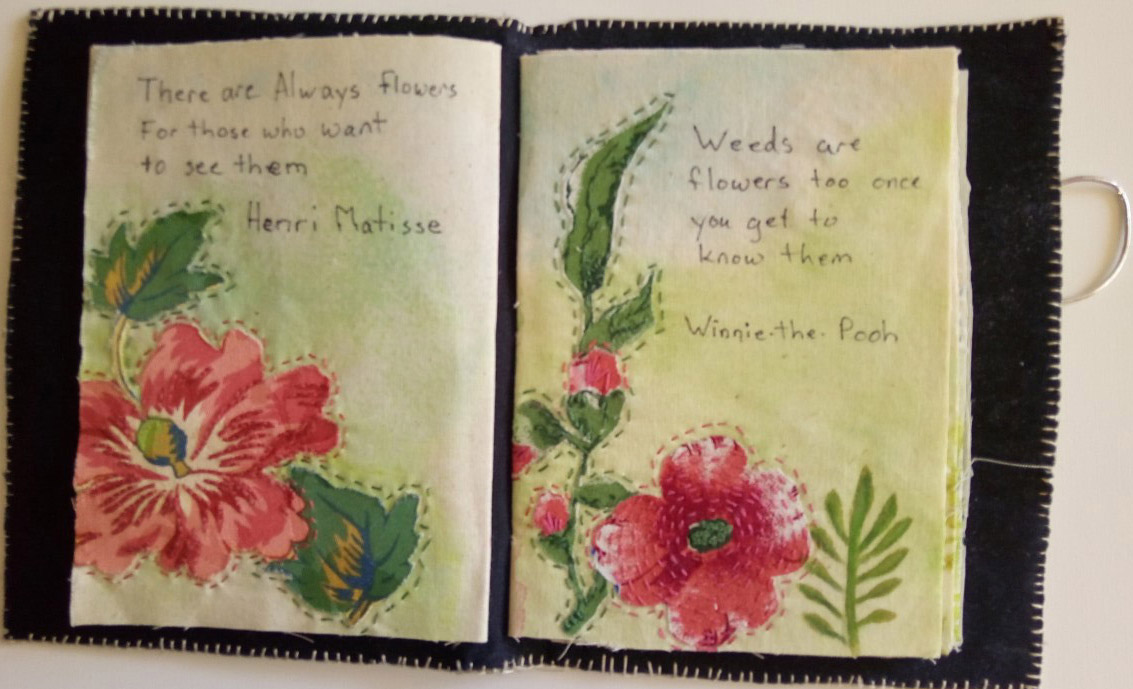 There are Always flowers
For those who want
to see them
Henri Matisse
Weeds are
flowers too once
you get to
know them
Winnie-the-Pooh